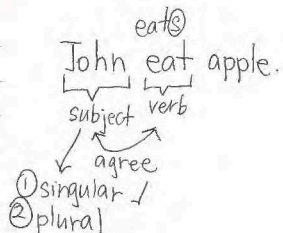 eatⓢ
John eat apple.
subject verb
agree
① singular ✓
② plural